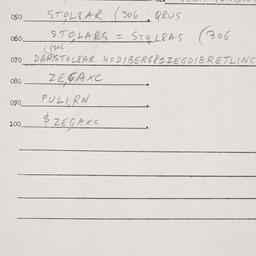 050 STOLSAR (306 QRUS
060 STOLARS = STOLSAS (306
(306
070 DARSTOLSAR HODIBERG812EGDIBRETLINC
080 ZEGAXC
090 PULI,RN
100 $ZEGAXC